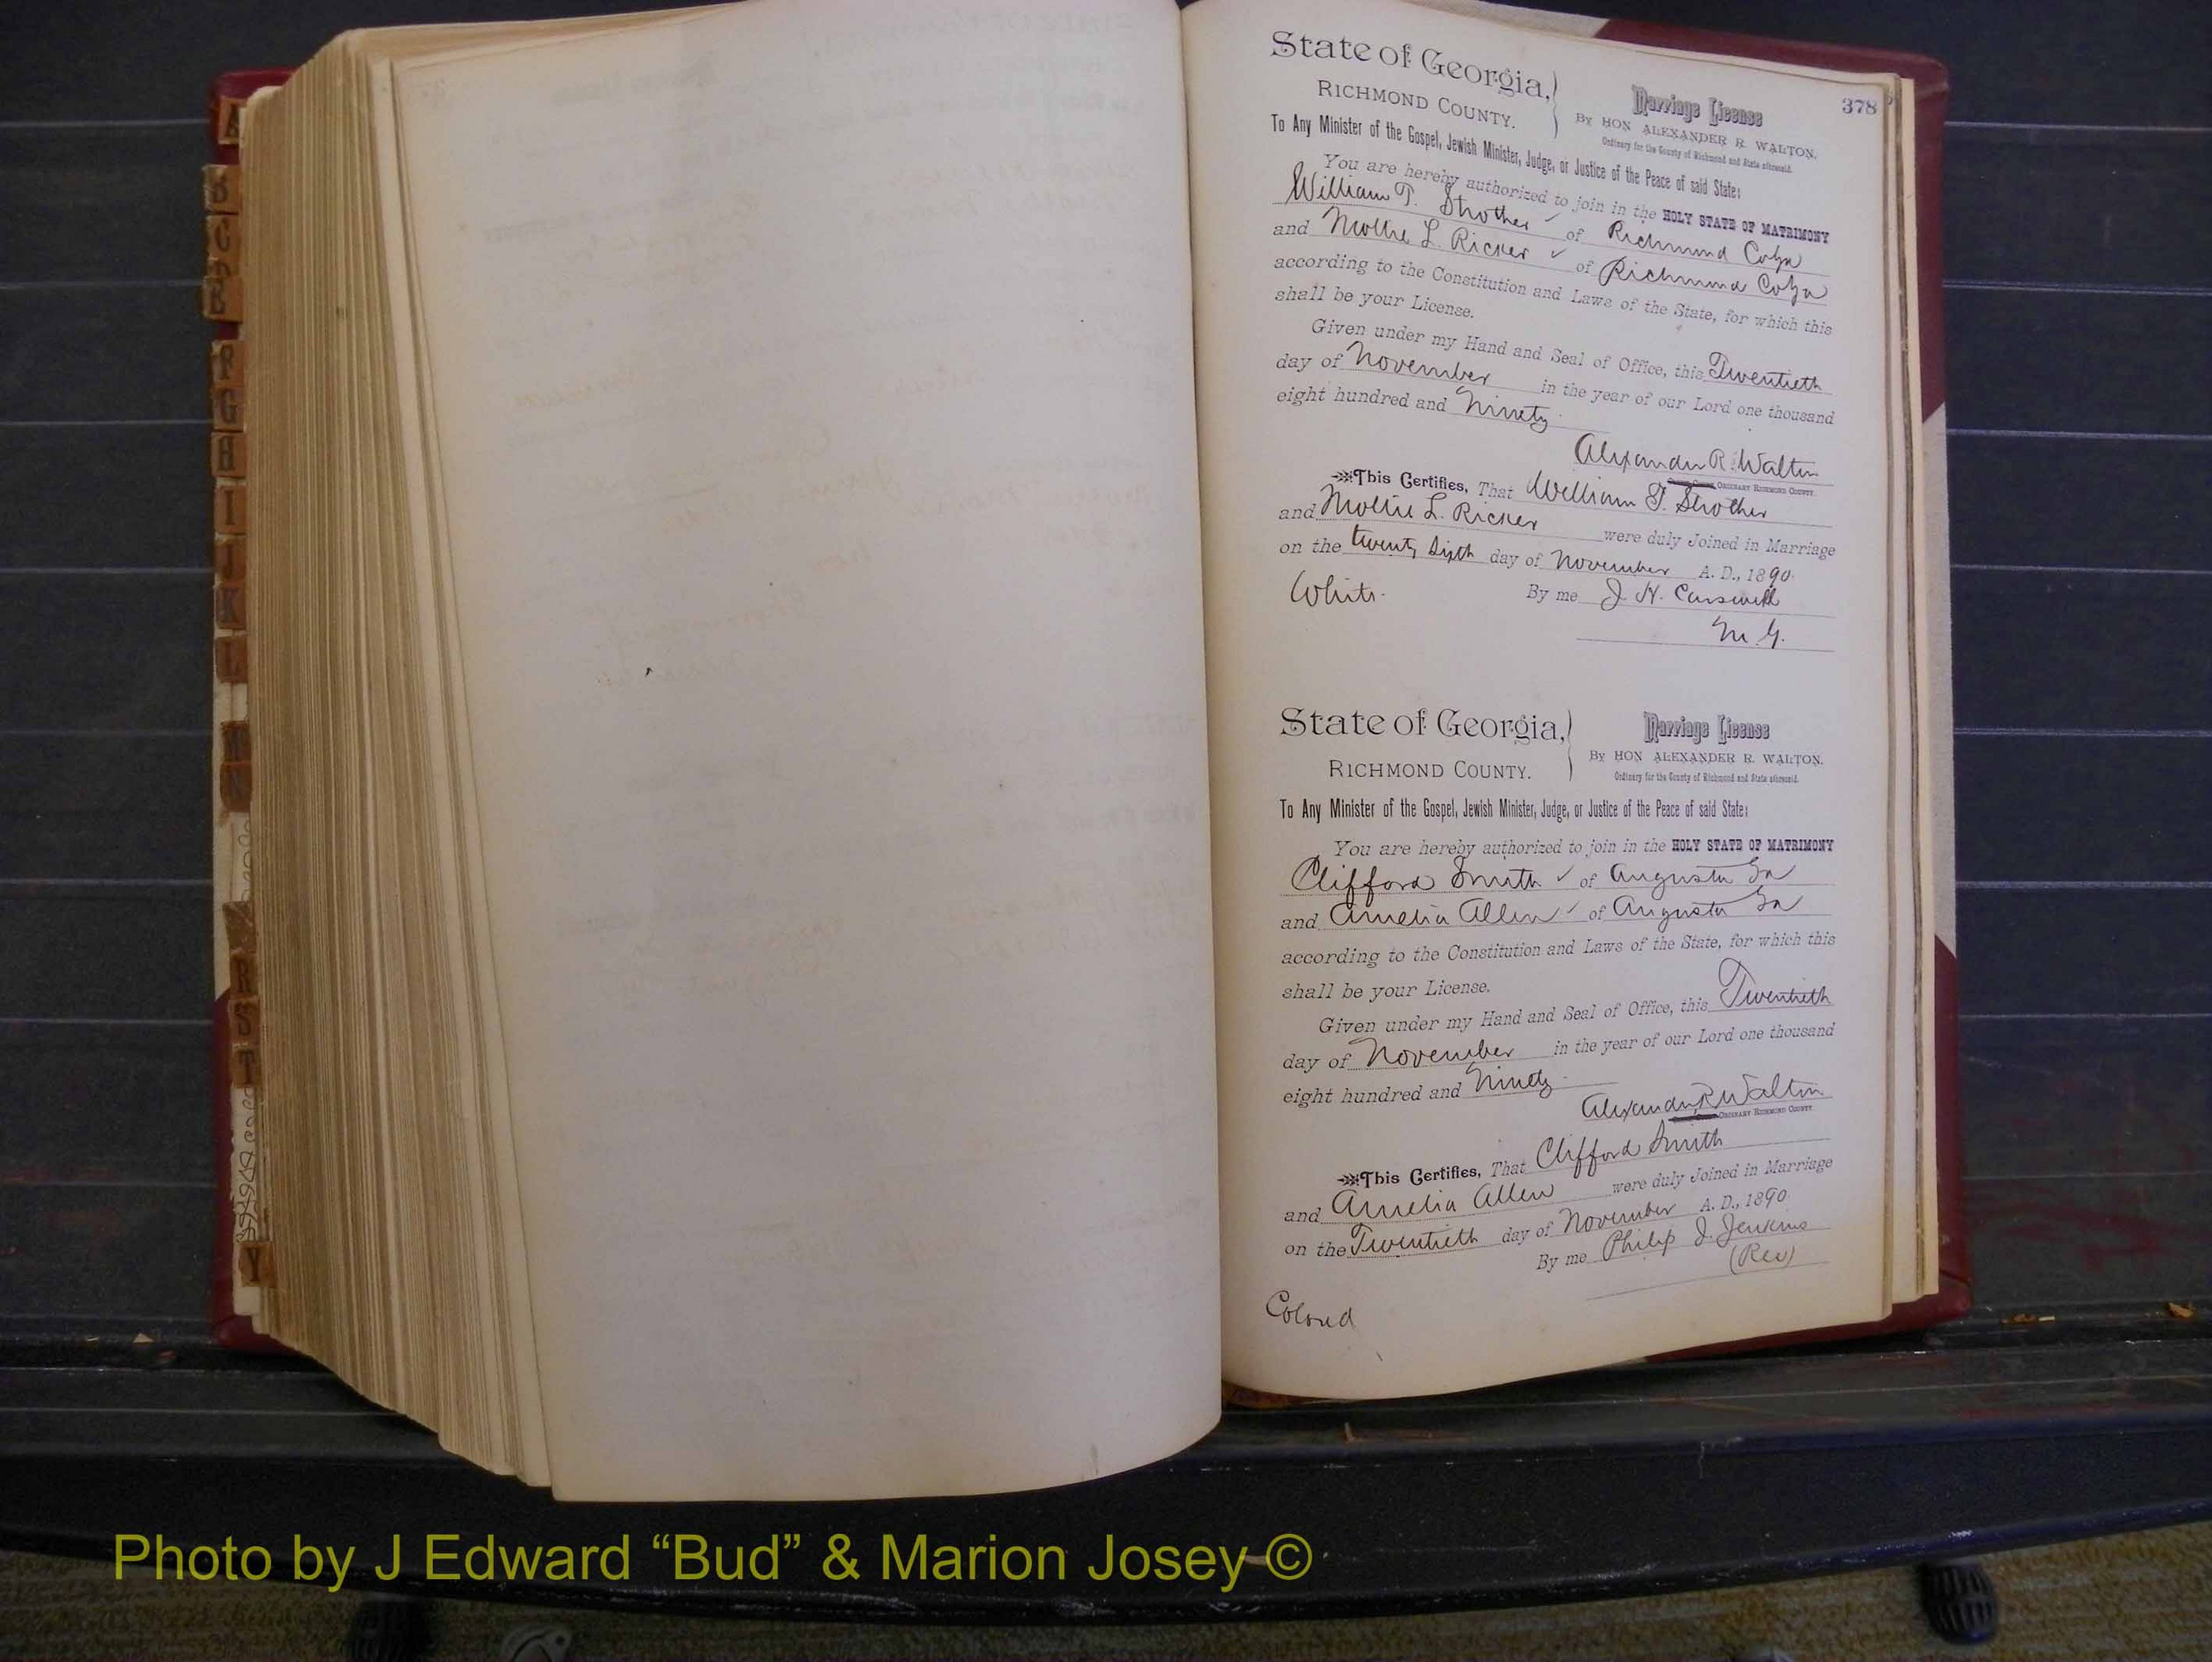 378
State of Georgia,
RICHMOND COUNTY.
Marriage License
By HON ALEXANDER R. WALTON,
Ordinary for the County of Richmond and State aforesaid.
To Any Minister of the Gospel, Jewish Minister, Judge, or Justice of the Peace of said State:
You are hereby authorized to join in the HOLY STATE OF MATRIMONY
William T. Strother ✓ of Richmond Co Ga
and Mollie L. Ricker ✓ of Richmond Co Ga
according to the Constitution and Laws of the State, for which this
shall be your License.
Given under my Hand and Seal of Office, this Twentieth
day of November in the year of our Lord one thousand
eight hundred and Ninety.
Alexander R. Walton
ORDINARY RICHMOND COUNTY.
This Certifies, That William T. Strother
and Mollie L. Ricker were duly Joined in Marriage
on the twenty Sixth day of November A. D., 1890.
White. By me J. H. Carswell
M. G.
State of Georgia,
RICHMOND COUNTY.
Marriage License
By HON ALEXANDER R. WALTON.
Ordinary for the County of Richmond and State aforesaid.
To Any Minister of the Gospel, Jewish Minister, Judge, or Justice of the Peace of said State:
You are hereby authorized to join in the HOLY STATE OF MATRIMONY
Clifford Smith ✓ of Augusta Ga
and Amelia Allen ✓ of Augusta Ga
according to the Constitution and Laws of the State, for which this
shall be your License.
Given under my Hand and Seal of Office, this Twentieth
day of November in the year of our Lord one thousand
eight hundred and Ninety.
Alexander R Walton
ORDINARY RICHMOND COUNTY.
This Certifies, That Clifford Smith
and Amelia Allen were duly Joined in Marriage
on the Twentieth day of November A. D., 1890.
By me Philip J. Jenkins
(Rev)
Colored
A
B
C
D
E
F
G
H
I
J
K
L
M
N
R
S
T
Y
Photo by J Edward “Bud” & Marion Josey ©